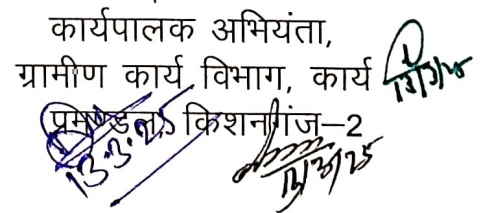 कार्यपालक अभियंता,
ग्रामीण कार्य विभाग, कार्य
प्रमण्डल, किशनगंज–2
13.3.25